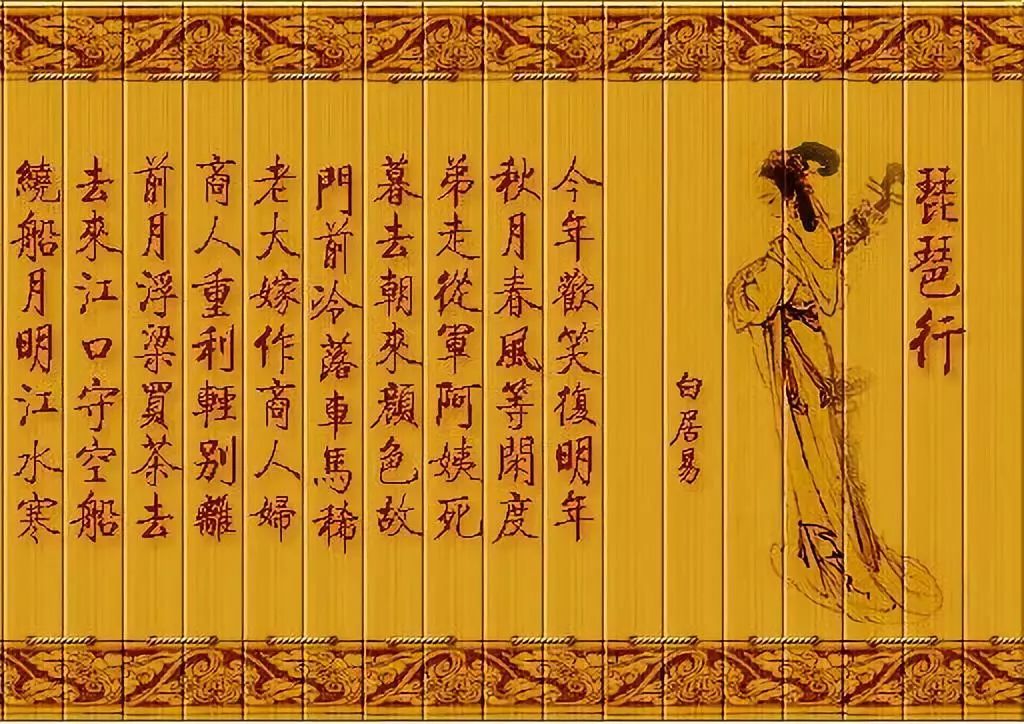 琵琶行
白居易
今年歡笑復明年
秋月春風等閑度
弟走從軍阿姨死
暮去朝來顏色故
門前冷落車馬稀
老大嫁作商人婦
商人重利輕別離
前月浮梁買茶去
去來江口守空船
繞船月明江水寒